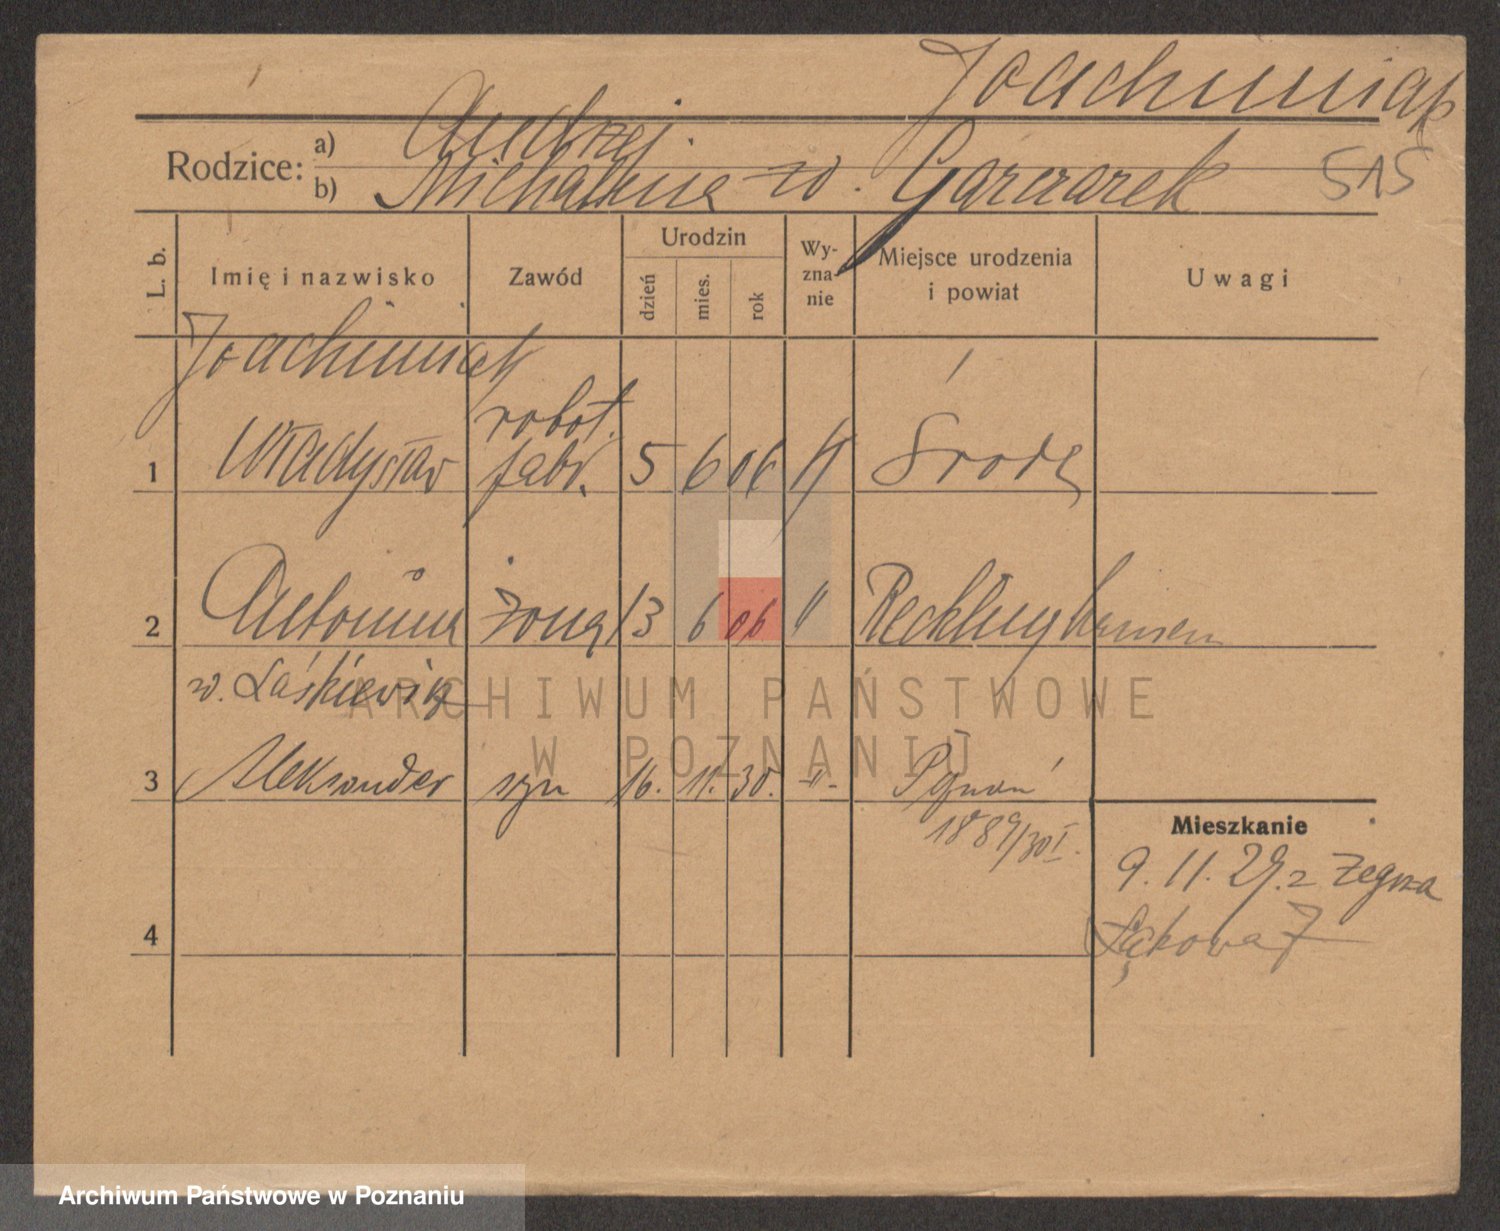 Joachimiak
Rodzice: a) Andrzej
b) Michalina z d. Garczarek 515
L. b. Imię i nazwisko Zawód Urodzin dzień mies. rok Wy-zna-nie Miejsce urodzenia i powiat Uwagi
Joachimiak
robot.
1 Władysław fabr. 5 6 06 Środa
2 Antonina żona 13 6 06 " Recklinghausen
Laśkiewicz
3 Aleksander syn 16. 11. 30. -"- Poznań
Mieszkanie
9. 11. 29. z Zegrza
Łąkowa 7
4
ARCHIWUM PAŃSTWOWE
W POZNANIU
Archiwum Państwowe w Poznaniu